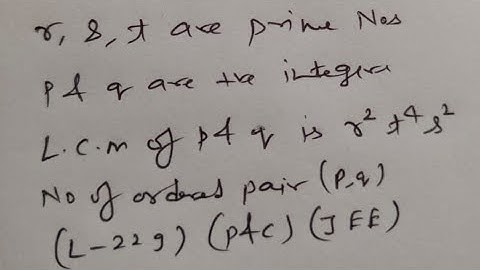 r, s, t are prime Nos
p & q are +ve integers
L.C.M of p & q is r² t⁴ s²
No of ordered pair (P,q)
(L-229) (P&C) (JEE)